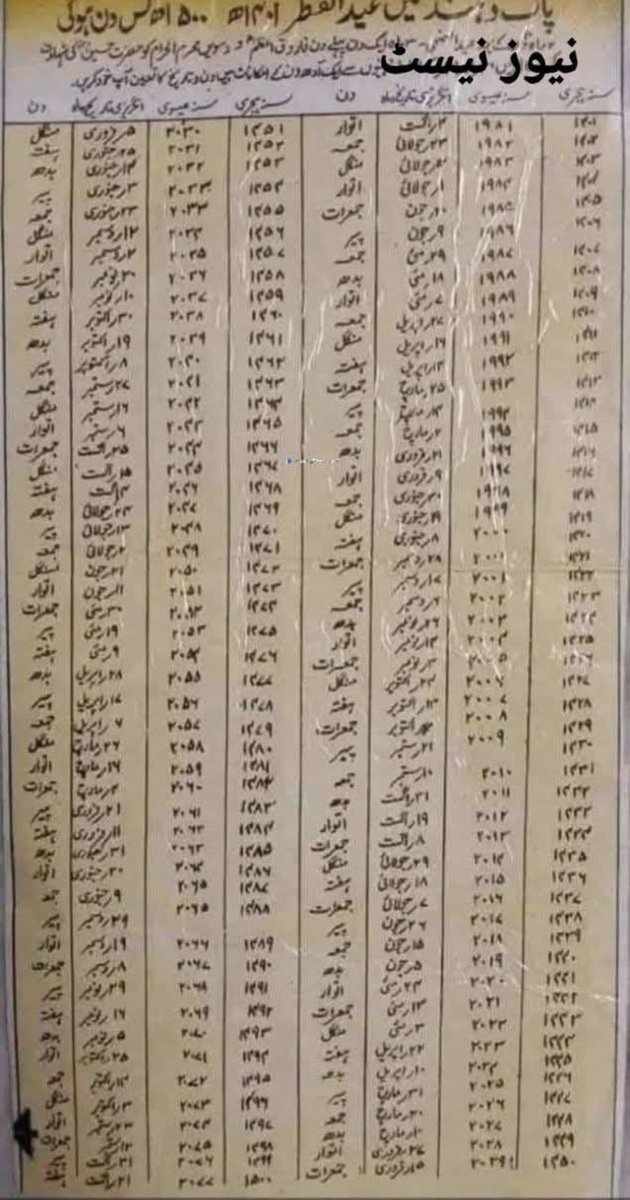 پاک و ہند میں عید الفطر ۱۴۰۱ھ تا ۱۵۰۰ھ کس دن ہوگی
نیوز نیسٹ
دن و تاریخ کا تعین آپ خود کریں
سنہ ہجری سنہ عیسوی انگریزی تاریخ ماہ دن سنہ ہجری سنہ عیسوی انگریزی تاریخ ماہ دن
۱۴۰۱ ۱۹۸۱ ۲ اگست اتوار ۱۴۵۱ ۲۰۳۰ ۵ فروری منگل
۱۴۰۲ ۱۹۸۲ ۲۳ جولائی جمعہ ۱۴۵۲ ۲۰۳۱ ۲۵ جنوری ہفتہ
۱۴۰۳ ۱۹۸۳ ۱۲ جولائی منگل ۱۴۵۳ ۲۰۳۲ ۱۴ جنوری بدھ
۱۴۰۴ ۱۹۸۴ ۱ جولائی اتوار ۱۴۵۴ ۲۰۳۳ ۳ جنوری پیر
۱۴۰۵ ۱۹۸۵ ۲۰ جون جمعرات ۱۴۵۵ ۲۰۳۳ ۲۳ جنوری جمعہ
۱۴۰۶ ۱۹۸۶ ۹ جون پیر ۱۴۵۶ ۲۰۳۴ ۱۲ دسمبر منگل
۱۴۰۷ ۱۹۸۷ ۲۹ مئی جمعہ ۱۴۵۷ ۲۰۳۵ ۲ دسمبر اتوار
۱۴۰۸ ۱۹۸۸ ۱۸ مئی بدھ ۱۴۵۸ ۲۰۳۶ ۲۰ نومبر جمعرات
۱۴۰۹ ۱۹۸۹ ۷ مئی اتوار ۱۴۵۹ ۲۰۳۷ ۱۰ نومبر منگل
۱۴۱۰ ۱۹۹۰ ۲۷ اپریل جمعہ ۱۴۶۰ ۲۰۳۸ ۳۰ اکتوبر ہفتہ
۱۴۱۱ ۱۹۹۱ ۱۶ اپریل منگل ۱۴۶۱ ۲۰۳۹ ۱۹ اکتوبر بدھ
۱۴۱۲ ۱۹۹۲ ۴ اپریل ہفتہ ۱۴۶۲ ۲۰۴۰ ۸ اکتوبر پیر
۱۴۱۳ ۱۹۹۳ ۲۵ مارچ جمعرات ۱۴۶۳ ۲۰۴۱ ۲۷ ستمبر جمعہ
۱۴۱۴ ۱۹۹۴ ۱۴ مارچ پیر ۱۴۶۴ ۲۰۴۲ ۱۶ ستمبر منگل
۱۴۱۵ ۱۹۹۵ ۳ مارچ جمعہ ۱۴۶۵ ۲۰۴۳ ۶ ستمبر اتوار
۱۴۱۶ ۱۹۹۶ ۲۱ فروری بدھ ۱۴۶۶ ۲۰۴۴ ۲۵ اگست جمعرات
۱۴۱۷ ۱۹۹۷ ۹ فروری اتوار ۱۴۶۷ ۲۰۴۵ ۱۵ اگست منگل
۱۴۱۸ ۱۹۹۸ ۳۰ جنوری جمعہ ۱۴۶۸ ۲۰۴۶ ۴ اگست ہفتہ
۱۴۱۹ ۱۹۹۹ ۱۹ جنوری منگل ۱۴۶۹ ۲۰۴۷ ۲۴ جولائی بدھ
۱۴۲۰ ۲۰۰۰ ۸ جنوری ہفتہ ۱۴۷۰ ۲۰۴۸ ۱۳ جولائی پیر
۱۴۲۱ ۲۰۰۰ ۲۸ دسمبر جمعرات ۱۴۷۱ ۲۰۴۹ ۲ جولائی جمعہ
۱۴۲۲ ۲۰۰۱ ۱۷ دسمبر پیر ۱۴۷۲ ۲۰۵۰ ۲۱ جون منگل
۱۴۲۳ ۲۰۰۲ ۶ دسمبر جمعہ ۱۴۷۳ ۲۰۵۱ ۱۱ جون اتوار
۱۴۲۴ ۲۰۰۳ ۲۶ نومبر بدھ ۱۴۷۴ ۲۰۵۲ ۳۰ مئی جمعرات
۱۴۲۵ ۲۰۰۴ ۱۴ نومبر اتوار ۱۴۷۵ ۲۰۵۳ ۱۹ مئی پیر
۱۴۲۶ ۲۰۰۵ ۳ نومبر جمعرات ۱۴۷۶ ۲۰۵۴ ۹ مئی ہفتہ
۱۴۲۷ ۲۰۰۶ ۲۴ اکتوبر منگل ۱۴۷۷ ۲۰۵۵ ۲۸ اپریل بدھ
۱۴۲۸ ۲۰۰۷ ۱۳ اکتوبر ہفتہ ۱۴۷۸ ۲۰۵۶ ۱۷ اپریل پیر
۱۴۲۹ ۲۰۰۸ ۲ اکتوبر جمعرات ۱۴۷۹ ۲۰۵۷ ۶ اپریل جمعہ
۱۴۳۰ ۲۰۰۹ ۲۱ ستمبر پیر ۱۴۸۰ ۲۰۵۸ ۲۶ مارچ منگل
۱۴۳۱ ۲۰۱۰ ۱۰ ستمبر جمعہ ۱۴۸۱ ۲۰۵۹ ۱۶ مارچ اتوار
۱۴۳۲ ۲۰۱۱ ۳۱ اگست بدھ ۱۴۸۲ ۲۰۶۰ ۴ مارچ جمعرات
۱۴۳۳ ۲۰۱۲ ۱۹ اگست اتوار ۱۴۸۳ ۲۰۶۱ ۲۱ فروری پیر
۱۴۳۴ ۲۰۱۳ ۸ اگست جمعرات ۱۴۸۴ ۲۰۶۲ ۱۱ فروری ہفتہ
۱۴۳۵ ۲۰۱۴ ۲۹ جولائی منگل ۱۴۸۵ ۲۰۶۳ ۳۱ جنوری بدھ
۱۴۳۶ ۲۰۱۵ ۱۸ جولائی ہفتہ ۱۴۸۶ ۲۰۶۴ ۲۰ جنوری اتوار
۱۴۳۷ ۲۰۱۶ ۷ جولائی جمعرات ۱۴۸۷ ۲۰۶۵ ۹ جنوری جمعہ
۱۴۳۸ ۲۰۱۷ ۲۶ جون پیر ۱۴۸۸ ۲۰۶۵ ۲۹ دسمبر پیر
۱۴۳۹ ۲۰۱۸ ۱۵ جون جمعہ ۱۴۸۹ ۲۰۶۶ ۱۹ دسمبر اتوار
۱۴۴۰ ۲۰۱۹ ۵ جون بدھ ۱۴۹۰ ۲۰۶۷ ۸ دسمبر جمعرات
۱۴۴۱ ۲۰۲۰ ۲۴ مئی اتوار ۱۴۹۱ ۲۰۶۸ ۲۹ نومبر پیر
۱۴۴۲ ۲۰۲۱ ۱۳ مئی جمعرات ۱۴۹۲ ۲۰۶۹ ۱۶ نومبر ہفتہ
۱۴۴۳ ۲۰۲۲ ۳ مئی منگل ۱۴۹۳ ۲۰۷۰ ۵ نومبر بدھ
۱۴۴۴ ۲۰۲۳ ۲۲ اپریل ہفتہ ۱۴۹۴ ۲۰۷۱ ۲۵ اکتوبر اتوار
۱۴۴۵ ۲۰۲۴ ۱۰ اپریل بدھ ۱۴۹۵ ۲۰۷۲ ۱۴ اکتوبر جمعہ
۱۴۴۶ ۲۰۲۵ ۳۱ مارچ پیر ۱۴۹۶ ۲۰۷۳ ۳ اکتوبر منگل
۱۴۴۷ ۲۰۲۶ ۲۰ مارچ جمعہ ۱۴۹۷ ۲۰۷۴ ۲۳ ستمبر اتوار
۱۴۴۸ ۲۰۲۷ ۱۰ مارچ بدھ ۱۴۹۸ ۲۰۷۵ ۱۲ ستمبر جمعرات
۱۴۴۹ ۲۰۲۸ ۲۷ فروری اتوار ۱۴۹۹ ۲۰۷۶ ۳۱ اگست
۱۴۵۰ ۲۰۲۹ ۱۵ فروری جمعرات ۱۵۰۰ ۲۰۷۷ ۲۱ اگست ہفتہ